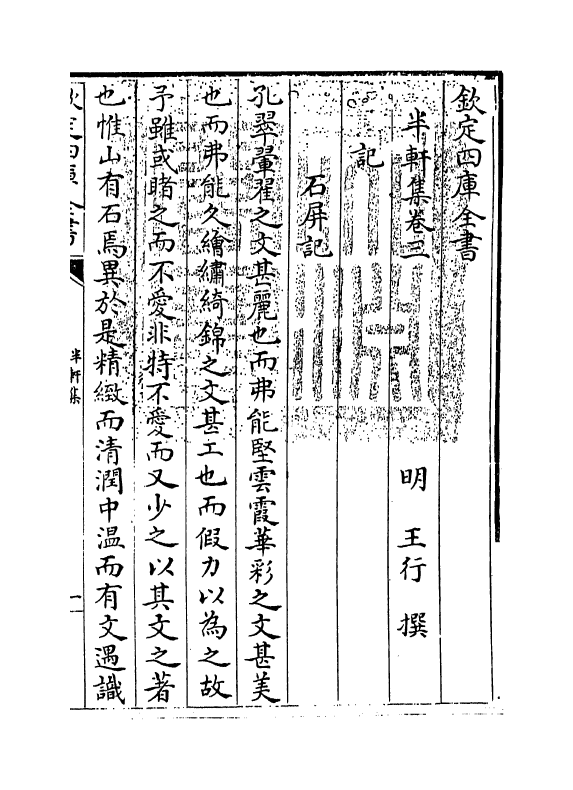 欽定四庫全書
半軒集卷三
明 王行 撰
記
石屏記
孔翠翬翟之文甚麗也而弗能堅雲霞華彩之文甚美
也而弗能久繪繡綺錦之文甚工也而假力以為之故
予雖或睹之而不愛非特不愛而又少之以其文之著
也惟山有石焉異於是精緻而清潤中温而有文遇識
欽定四庫全書
半軒集
一